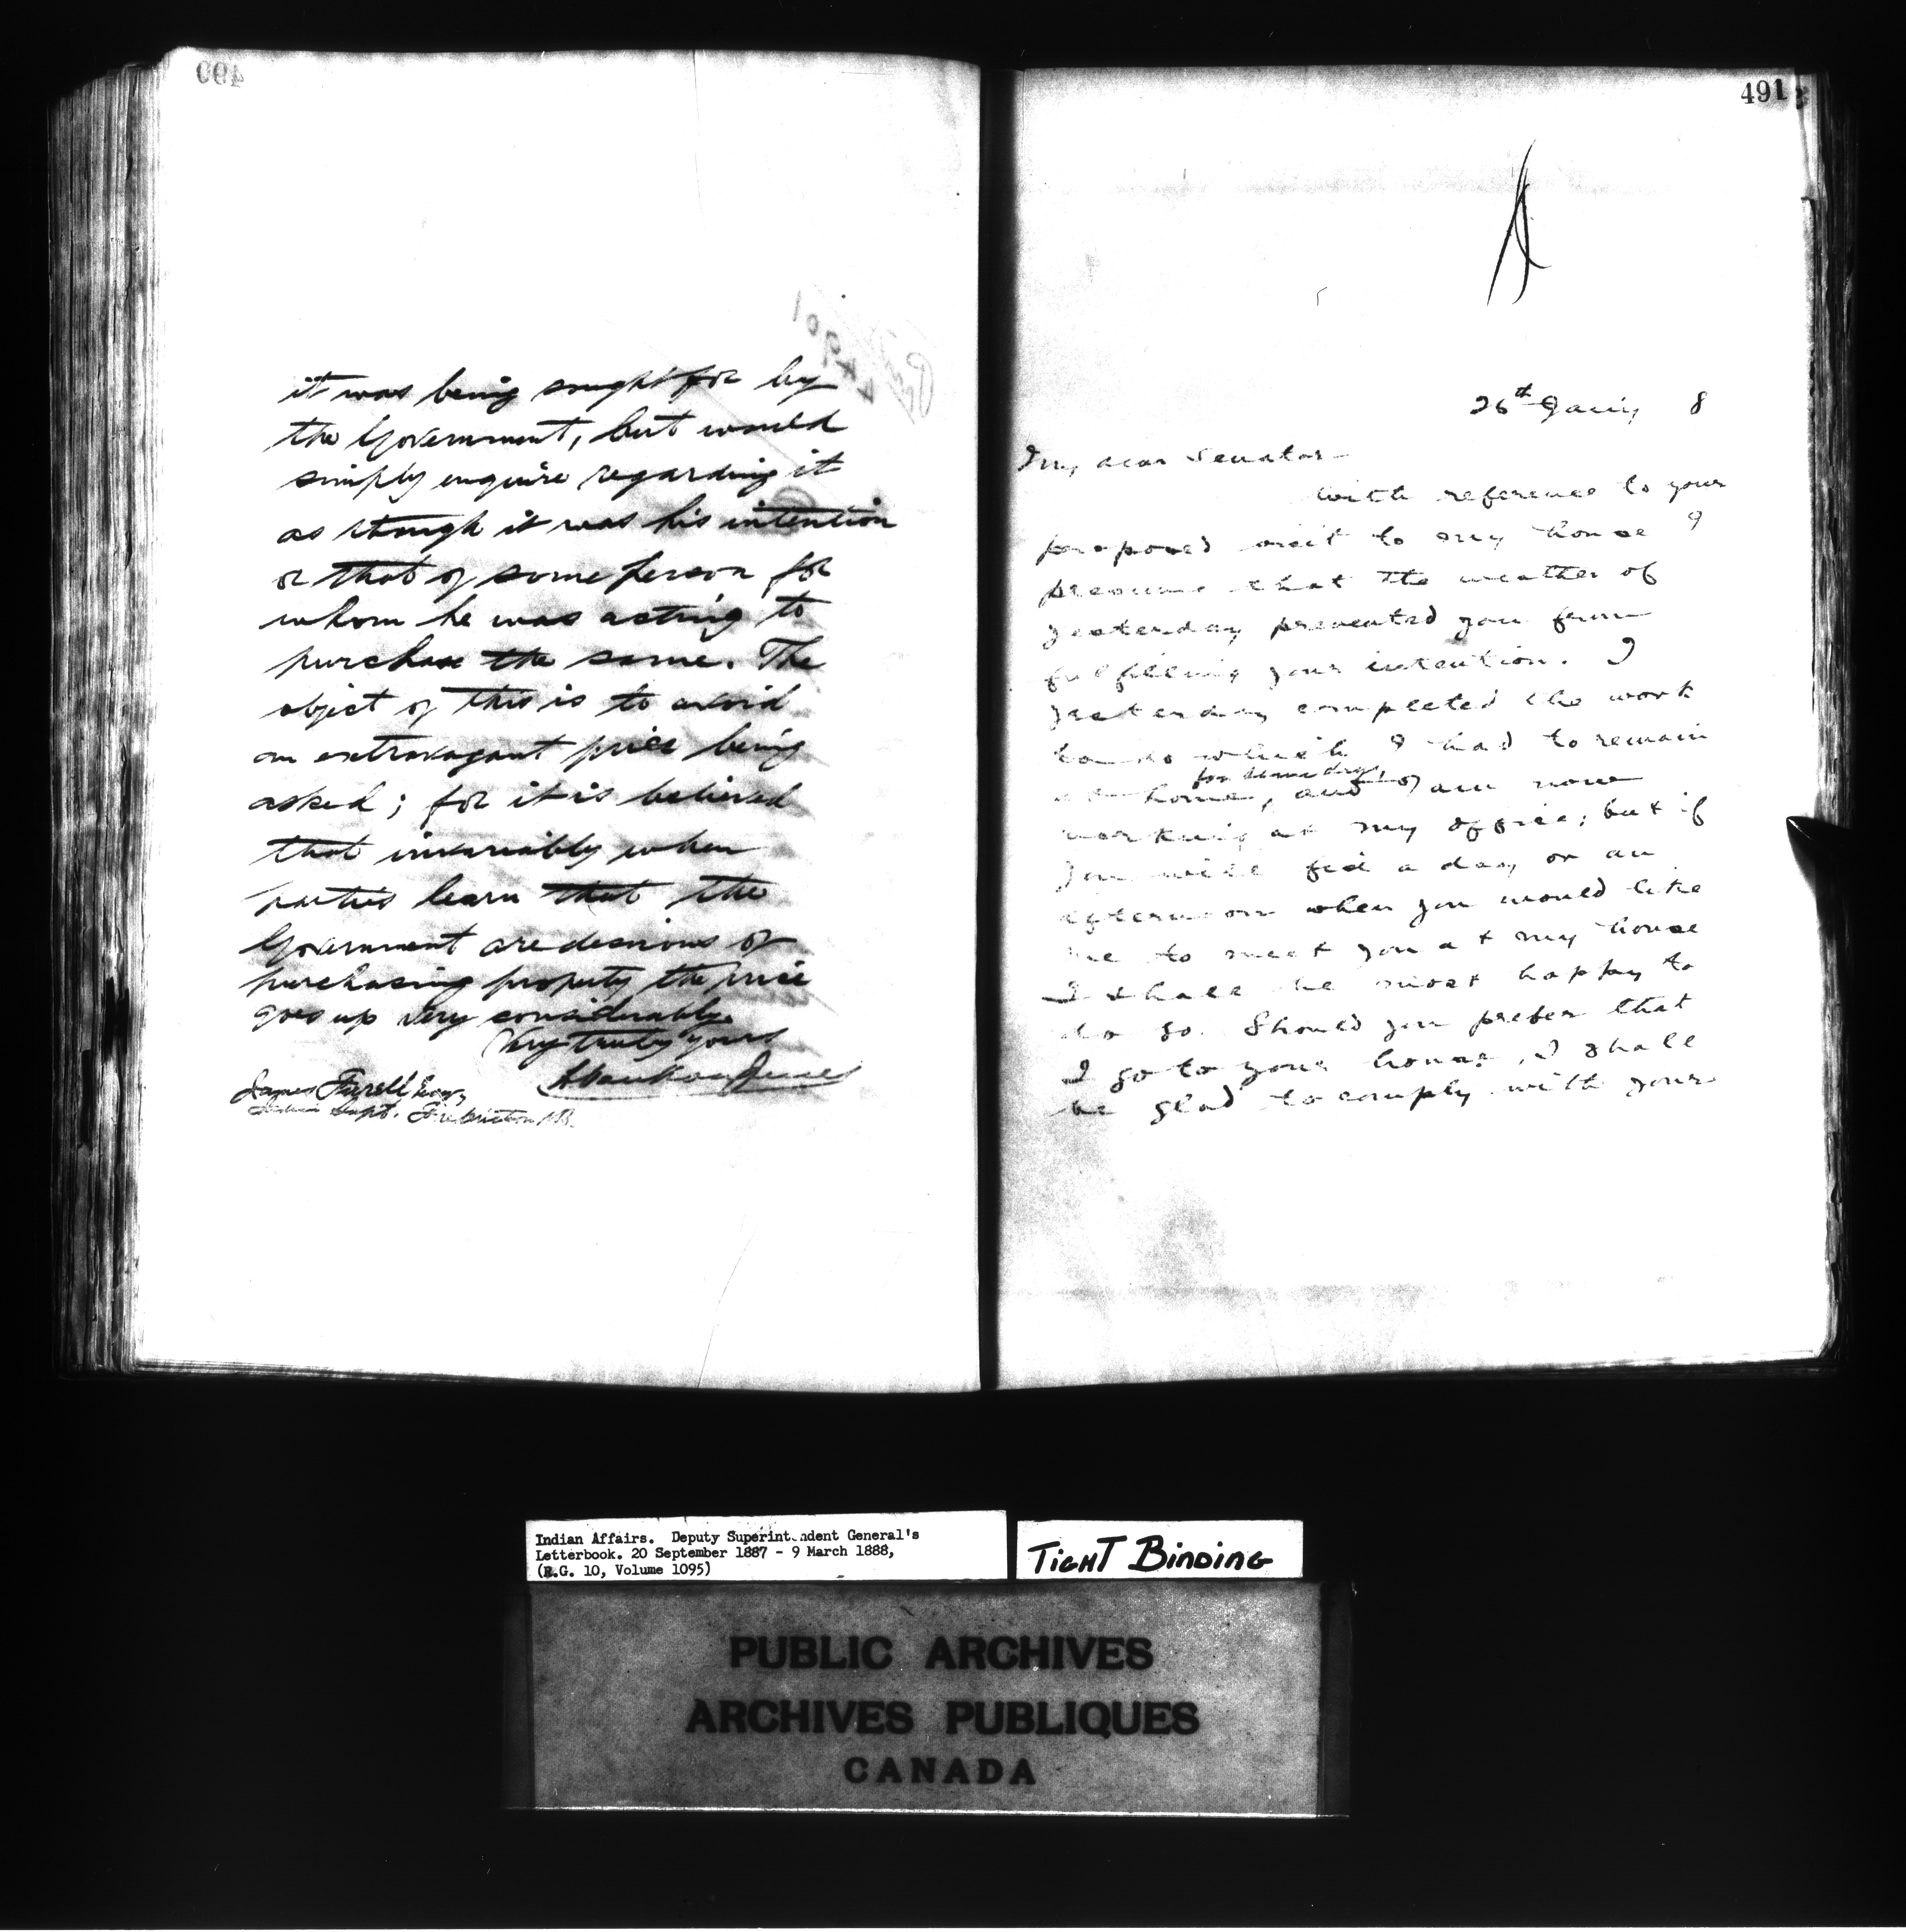 490
it was being sought for by
the Government, but would
simply enquire regarding it
as though it was his intention
or that of some person for
whom he was acting to
purchase the same. The
object of this is to avoid
an extravagant price being
asked; for it is believed
that invariably when
parties learn that the
Government are desirous of
purchasing property the price
goes up very considerably.
Very truly yours
James Farrell Esq,
Indian Supt. Fredericton NB.
491
26th Jany 8
My dear Senator
With reference to your
proposed visit to my house I
presume that the weather of
yesterday prevented you from
fulfilling your intention. I
yesterday completed the work
to do which I had to remain
for some days,
at home, and I am now
working at my office; but if
you will fix a day or an
afternoon when you would like
me to meet you at my house
I shall be most happy to
do so. Should you prefer that
I go to your house, I shall
be glad to comply with your
Indian Affairs. Deputy Superintendent General's
Letterbook. 20 September 1887 - 9 March 1888,
(R.G. 10, Volume 1095)
TIGHT BINDING
PUBLIC ARCHIVES
ARCHIVES PUBLIQUES
CANADA